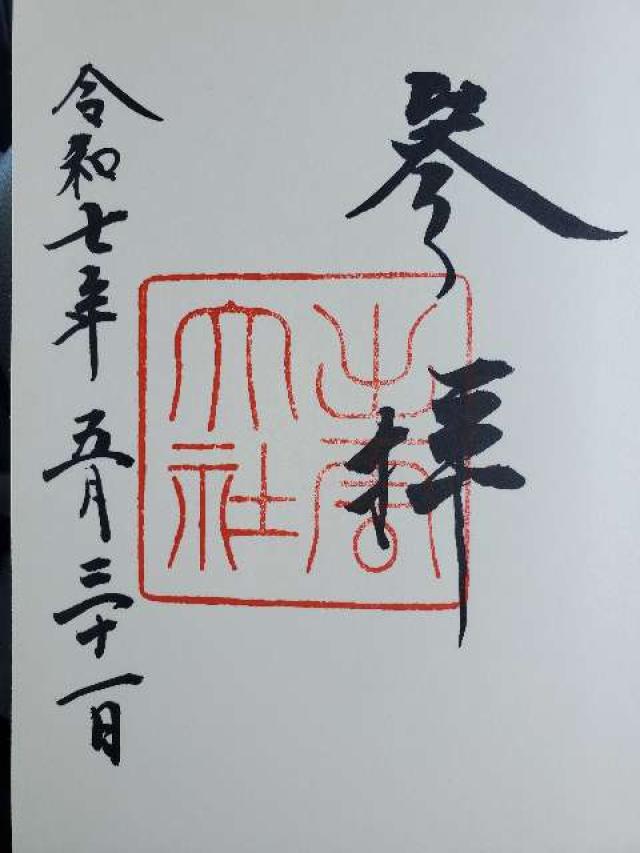 參拝
出雲
大社
令和七年五月三十一日